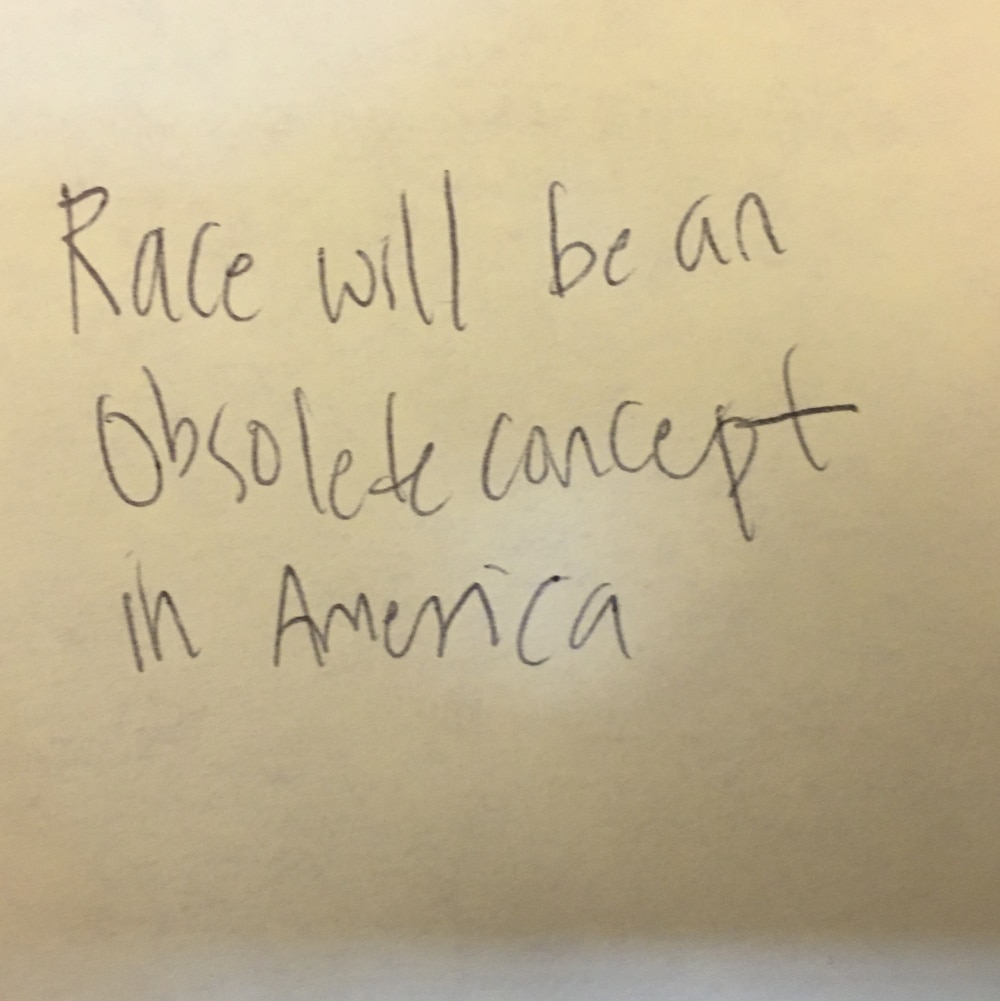 Race will be an
Obsolete concept
in America